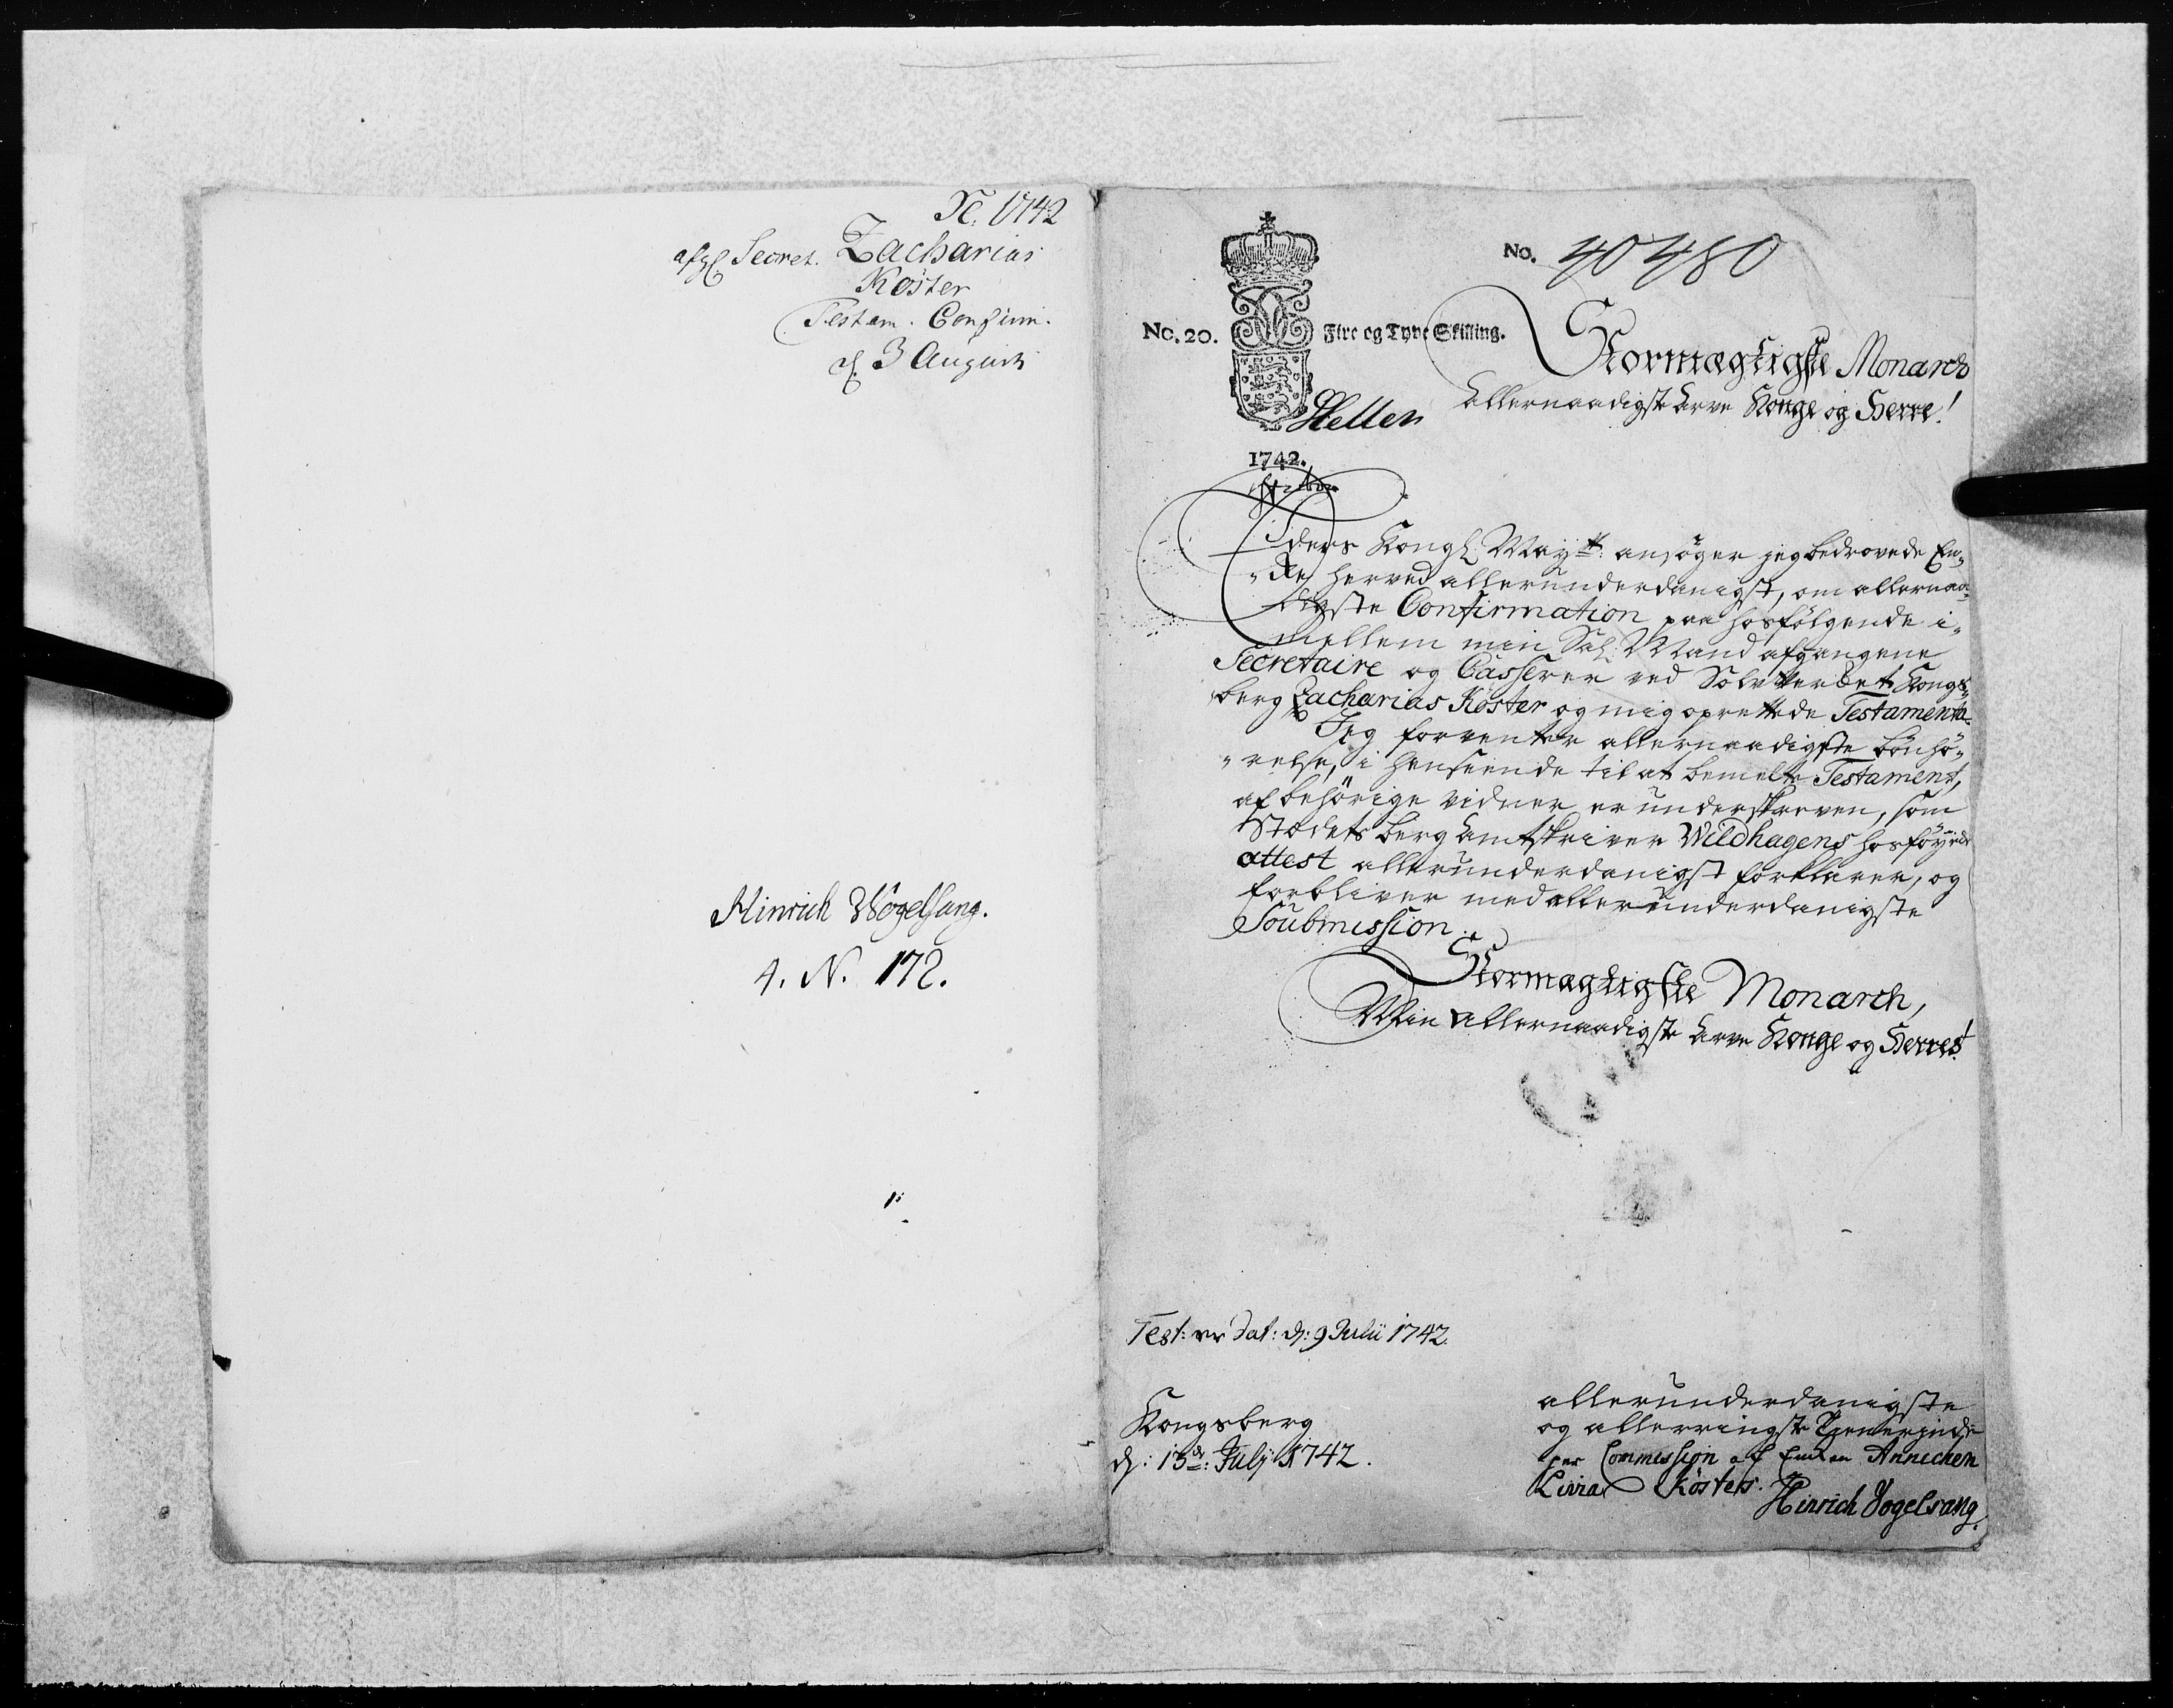 N. 1742
afg Secret. Zacharias
Köster
Testam. Confirm.
d. 3 Augusti
Hinrich Vögelsang.
4. N. 172.
No. 40480
No. 20. Fire og Tyve Skilling.
Stormægtigste Monarch
Allernaadigste Arve Konge og Herre!
1742.
Eders Kongl. Mayt: ansøger jeg bedrøvede En„
„ke herved allerunderdanigst, om allernaa„
digste Confirmation paa hosfölgende i„
mellem min Sal: Mand afgangene
Secretaire og Casserer ved Sølv Verket Kongs„
berg Zacharias Köster og mig oprettede Testamente.
Jeg forventer allernaadigste bönhö„
„relse, i henseende til at bemelte Testament,
af behörige vidner er underskreven, som
Stedets berg Amtskriver Wildhagens hosföyede
attest allerunderdanigst forklarer, og
forbliver med allerunderdanigste
Soubmission.
Stormægtigste Monarch,
Min Allernaadigste Arve Konge og Herres!
Test: er Dat: d: 9 Julii 1742.
Kongsberg
d: 13de: Julj 1742.
allerunderdanigste
og allerringeste Tienerinde
per Commission af Enken Annichen
Livia Kösters.
Hinrich Vogelsang.